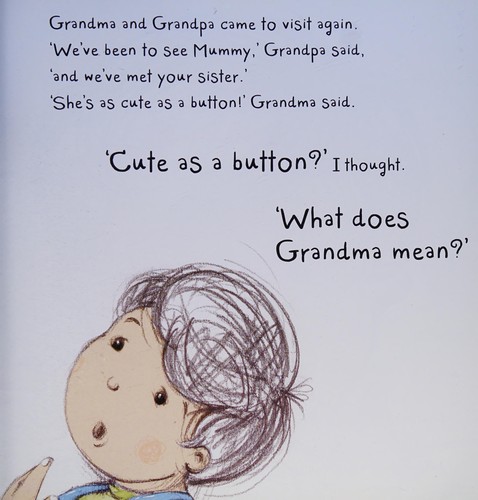 Grandma and Grandpa came to visit again.
'We've been to see Mummy,' Grandpa said,
'and we've met your sister.'
'She's as cute as a button!' Grandma said.
'Cute as a button?' I thought.
'What does
Grandma mean?'